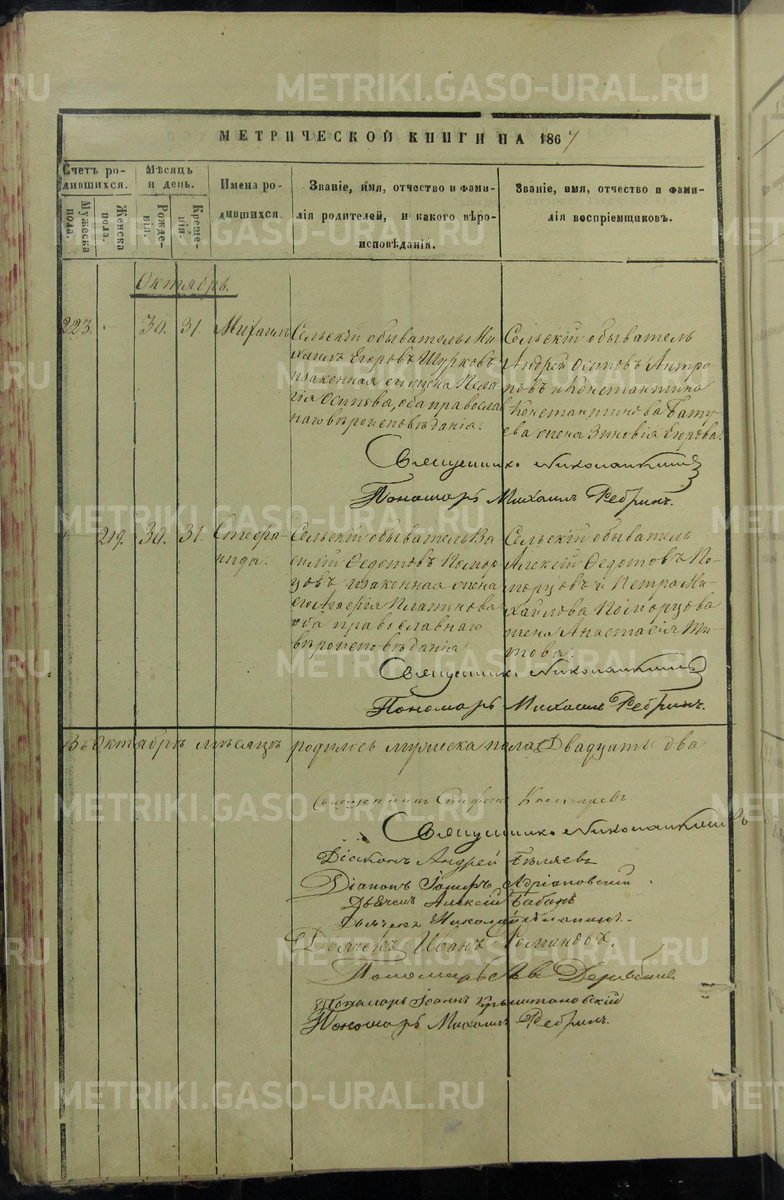 МЕТРИЧЕСКОЙ КНИГИ НА 1867
Счетъ родившихся.
Мужеска пола.
Женска пола.
Мѣсяцъ и день.
Рожденія.
Крещенія.
Имена родившихся.
Званіе, имя, отчество и фамилія родителей, и какого вѣроисповѣданія.
Званіе, имя, отчество и фамилія воспріемщиковъ.
Октябрь.
223.
30.
31.
Михаилъ
Сельскій обыватель Ми
хаилъ Егоровъ Шурковъ
и законная его жена Пела
гія Осипова, оба православ
наго вѣроисповѣданія.
Сельскій обыватель
Андрей Осиповъ Антро
повъ и Константина
Константинова Бату
ева жена Зиновія Егорова.
Священникъ Николай
Пономарь Михаилъ Ребринъ.
219.
30.
31.
Стефа
нида.
Сельскій обыватель Ва
силій Ѳедотовъ Помор
цовъ и законная жена
его Агафія Платонова
оба православнаго
вѣроисповѣданія
Сельскій обыватель
Алексѣй Ѳедотовъ По
морцовъ и Петра Ми
хайлова Поморцова
жена Анастасія Ти
това.
Священникъ Николай
Пономарь Михаилъ Ребринъ.
Въ Октябрѣ мѣсяцѣ родилось мужеска пола двадцать два
Священникъ Стефанъ
Священникъ Николай
Діаконъ Андрей Бѣляевъ
Діаконъ Адріановскій
Дьячекъ Алексѣй Бабинъ
Дьячекъ Николай
Дьячекъ Иванъ Романовъ.
Пономарь
Пономарь Іоаннъ
Пономарь Михаилъ Ребринъ.
METRIKI.GASO-URAL.RU